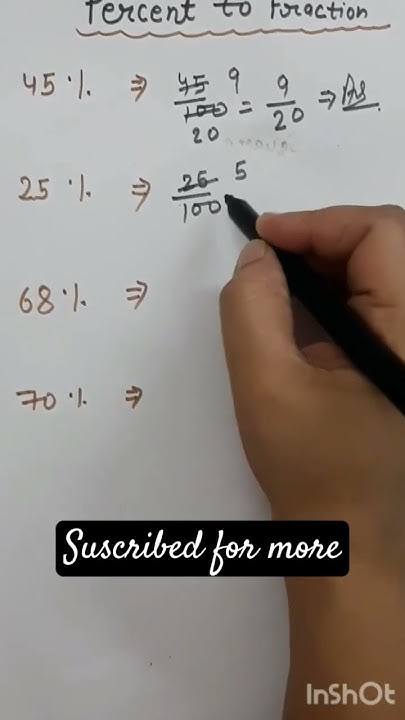 Percent to Fraction
45 % ⇒ 45/100 9 20 = 9/20 ⇒ As
25 % ⇒ 25/100 5
68 % ⇒
70 % ⇒
Suscribed for more
InShOt